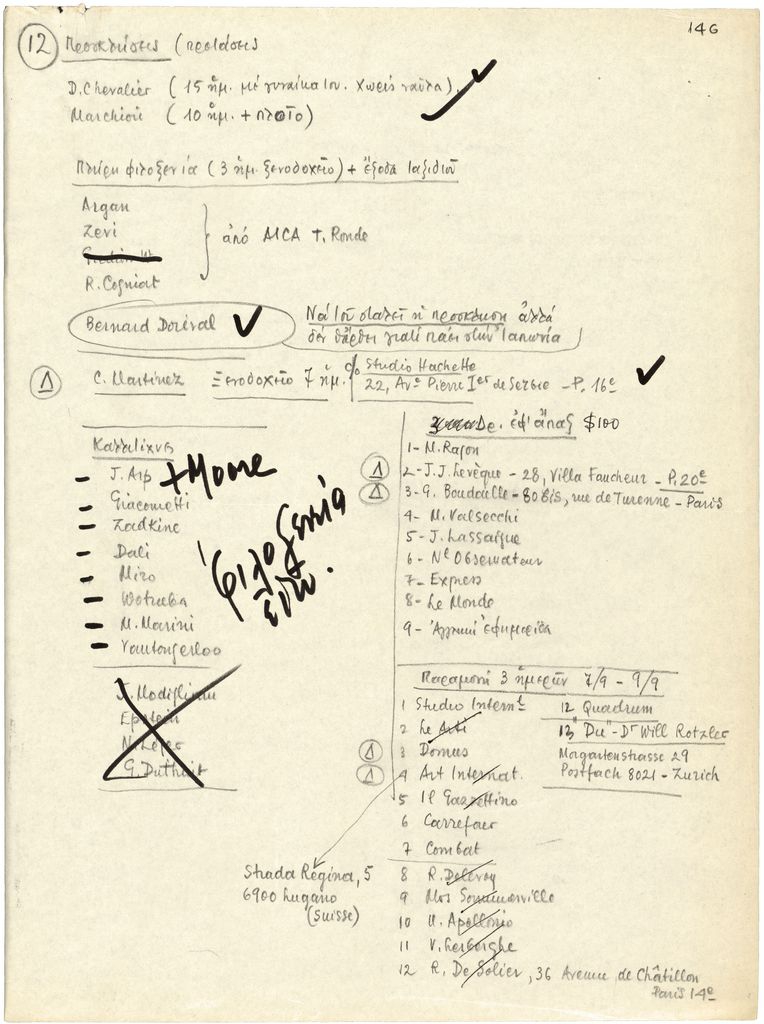 146
12 Προσκλήσεις (προτάσεις
D. Chevalier (15 ἡμ. μέ γυναίκα του. χωρίς ναῦλα)
Marchiori (10 ἡμ. + πλοῖο)
Πλήρη φιλοξενία (3 ἡμ. ξενοδοχεῖο) + ἔξοδα ταξιδιοῦ
Argan
Zevi
R. Cogniat
ἀπό AICA + T. Ronde
Bernard Dorival
Νά τοῦ σταλεῖ ἡ πρόσκληση ἀλλά
δέν θἄρθει γιατί πάει στήν Ιαπωνία
Δ C. Martinez Ξενοδοχεῖο 7 ἡμ.
c/o Studio Hachette
22, Ave Pierre Ier de Serbie - P. 16e
Καλλιτέχνες
- J. Arp + Moore
- Giacometti
- Zadkine
- Dali
- Miro
- Wotruba
- M. Marini
- Vantongerloo
φιλοξενία
J. Modigliani
Epstein
N. Leger
G. Duthuit
De. ἐφ' ἅπαξ $100
1- M. Ragon
Δ 2- J.J. Levèque - 28, Villa Faucheur - P. 20e
Δ 3- G. Boudaille - 80 Bis, rue de Turenne - Paris
4- M. Valsecchi
5- J. Lassaigne
6- Nel Observateur
7- Express
8- Le Monde
9- Ἀγγλική ἐφημερίδα
Παραμονή 3 ἡμερῶν 7/9 - 9/9
1 Studio Internl
2 Le Arti
Δ 3 Domus
Δ 4 Art Internat.
5 Il Gazzettino
6 Carrefour
7 Combat
8 R. Delevoy
9 Mrs Sommerville
10 U. Apollonio
11 V. Gerborghe
12 R. De Solier, 36 Avenue de Châtillon
Paris 14e
12 Quadrum
13 "Du" - Dr Will Rotzler
Morgartenstrasse 29
Postfach 8021 - Zurich
Strada Regina, 5
6900 Lugano
(Suisse)